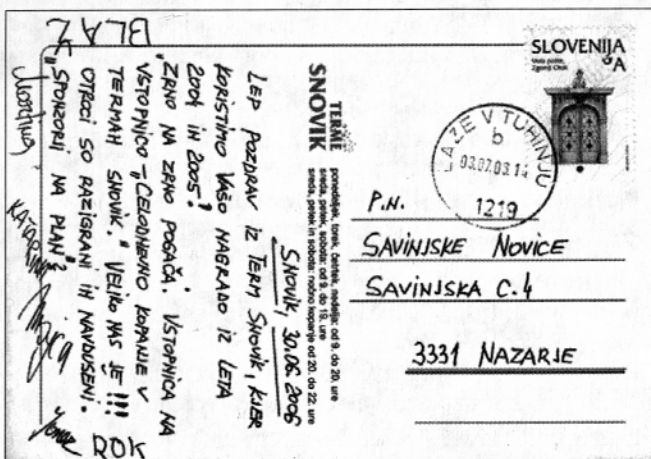 SLOVENIJA
A
LAZE V TUHINJU
b
03.07.03.14
1219
P.N.
SAVINJSKE NOVICE
SAVINJSKA C.4
3331 NAZARJE
TERME
SNOVIK
ponedeljek, torek, četrtek, nedelja: od 9. do 20. ure
sreda, petek in sobota: od 9. do 19. ure
sreda, petek in sobota: nočno kopanje od 20. do 22. ure
SNOVIK, 30.06.2006
LEP POZDRAV IZ TERM SNOVIK, KJER
KORISTIMO VAŠO NAGRADO IZ LETA
2004 IN 2005.
"ZRNO NA ZRNO POGAČA. VSTOPNICA NA
VSTOPNICO - CELODNEVNO KOPANJE V
TERMAH SNOVIK." VELIKO NAS JE !!!
OTROCI SO RAZIGRANI IN NAVDUŠENI.
"SPONZORJI NA PLAN"
BLAŽ
KATARINA
ROK